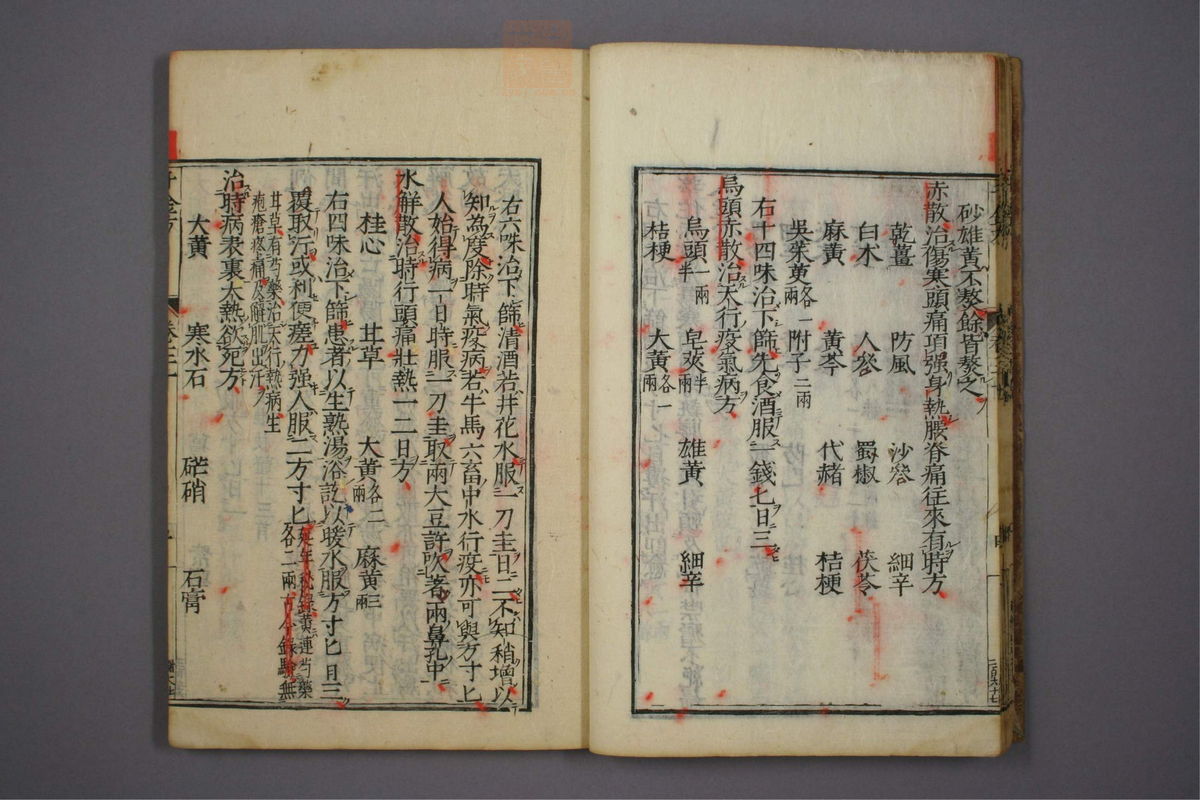 砂雄黃不熬餘皆熬之
赤散治傷寒頭痛項强身熱腰脊痛往來有時方
乾薑 防風 沙參 細辛
白朮 人參 蜀椒 茯苓
麻黃 黃芩 代赭 桔梗
吳茱萸各一兩 附子二兩
右十四味治下篩先食酒服一錢匕日三
烏頭赤散治天行疫氣病方
烏頭一兩半 皂莢半兩 雄黃 細辛
桔梗 大黃各一兩
右六味治下篩清酒若井花水服一刀圭日二不知稍增以
知為度除時氣疫病若牛馬六畜中水行疫亦可與方寸匕
人始得病一日時服一刀圭取兩大豆許吹著兩鼻孔中
水解散治時行頭痛壯熱一二日方
桂心 甘草 大黃各二兩 麻黃三兩
右四味治下篩患者以生熟湯浴訖以暖水服方寸匕日三
覆取汗或利便瘥力强人服二方寸匕延年秘錄黃連芍藥
各二兩古今錄驗無
甘草有芍藥治天行熱病生
疱瘡疼痛及解肌出汗
治時病表裏大熱欲死方
大黃 寒水石 芒硝 石膏